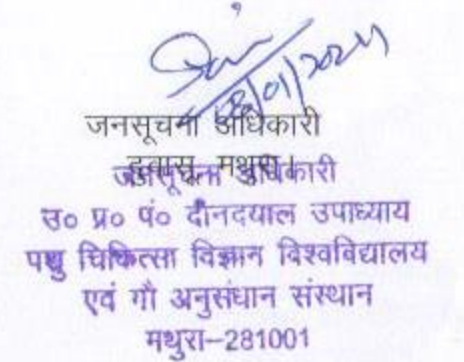 08/01/2024
जनसूचना अधिकारी
दुवासू, मथुरा।
जनसूचना अधिकारी
उ० प्र० पं० दीनदयाल उपाध्याय
पशु चिकित्सा विज्ञान विश्वविद्यालय
एवं गौ अनुसंधान संस्थान
मथुरा-281001